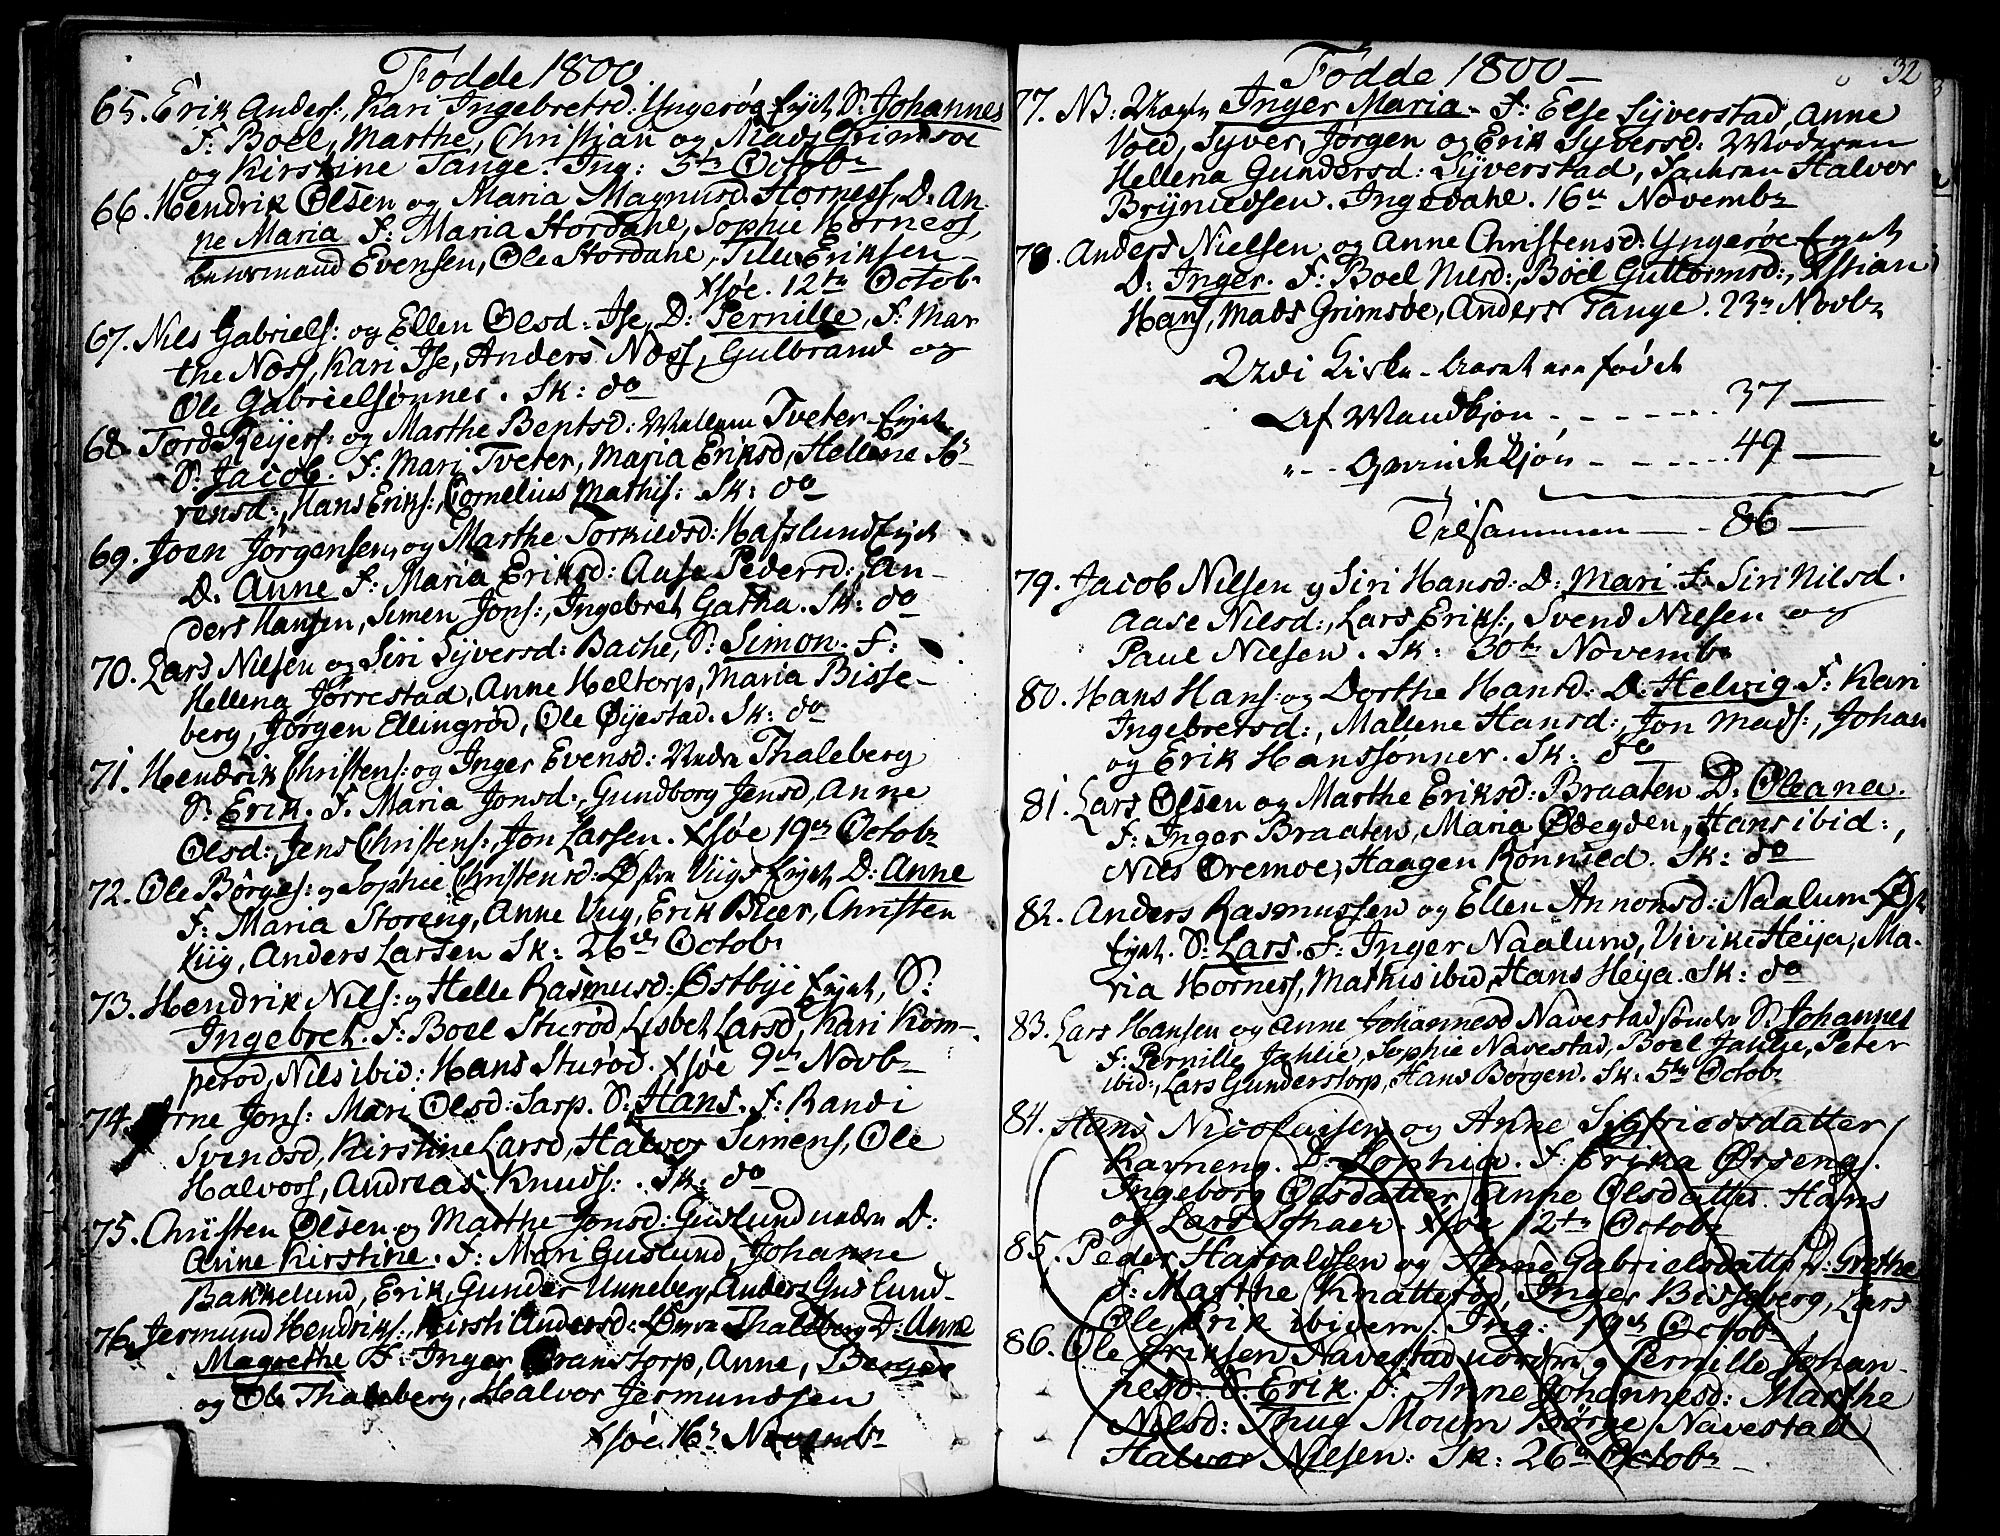 Födde 1800.
65. Erik Anders:, Kari Ingebretsd: Yngerøe Eyet S: Johannes
F: Boel, Marthe, Christian og Mads Grimsöe
og Kirstine Tange. Ing: 5te Octobr
66. Hendrik Olsen og Maria Magnusd Horness, D. An-
ne Maria F: Maria Stordahl, Sophie Horness,
Evensen, Ole Stordahl, Eriksen
Xsøe. 12te Octobr
67. Nils Gabriels: og Ellen Olsd: Ise, D: Pernille, F: Mar
the Ness, Kari Ise, Anders Ness, Gulbrand og
Ole Gabrielsønner. Sk: do
68. Tord Reijers: og Marthe Bentsd: Mellem Tveter Eyet
S. Jacob. F: Mari Tveter, Maria Eriksd, Hellene Sö-
rensd:, Hans Eriks:, Cornelius Mathis: Sk: do
69. Joen Jørgensen, og Marthe Torkildsd: Hafslund Eyet
D. Anne F: Maria Eriksd: Aase Pedersd:, An-
ders Hansen, Simen Jons:, Ingebret Gatha. Sk: do
70. Lars Nilsen og Siri Syversd: Bache, S: Simon. F:
Hellena Jörrestad, Anne Heltorp, Maria Bisse-
berg, Jørgen Ellingrød, Ole Øyestad. Sk: do
71. Hendrik Christens: og Inger Evensd: Nedre Thaleberg
S: Erik. F. Maria Jonsd:, Gundborg Jensd, Anne
Olsd:, Jens Christens:, Jon Larsen. Xsøe 19de Octobr
72. Ole Börges: og Sophie Christensd: Østre Viigs Eyet D: Anne
F: Maria Storeng, Anne Viig, Erik Buer, Christen
Viig, Anders Larsen Sk: 26de Octobr
73. Hendrik Nils: og Helle Rasmusd: Østbye Eyet, S:
Ingebret. F: Boel Sturød, Lisbet Larsd, Kari Kom-
perød, Nils ibid: Hans Sturød. Xsøe 9de Novbr
74. Arne Jons: Mari Olsd: Sarp. S: Hans. F: Randi
Svendsd, Kirstine Larsd, Halvor Simens, Ole
Halvors, Andreas Knuds:. Sk: do
75. Christen Olsen og Marthe Jonsd: Guslund nedre D:
Anne Kirstine. F: Mari Guslund, Johanne
Bakkelund, Erik, Gunder Unneberg, Anders Guslund
76. Jermund Hendriks:, Kirsti Andersd: Øvre Thaleberg D: Anne
Magrethe F: Inger Branstorp, Anne, Berger
og Ole Thaleberg, Halvor Jermundsen
Xsøe. 16de Novembr
Födde 1800
32
77. NB: Inger Maria. F: Else Syverstad, Anne
Voed, Syver, Jörgen og Erik Syversd: Moderen
Hellena Gundersd: Syverstad, Faderen Halvor
Bryniedsen. Ingedahl. 16de Novembr
78. Anders Nielsen og Anne Christensd: Yngerøe Eyet
D: Inger. F: Boel Nilsd:, Boel Guttormsd:, Xstian
Hans, Mads Grimsöe, Anders Tange. 23de Novbr
Udi Kirke-Aaret ere födet
Af Mandkjön - - - - 37
" - - Qvindekjön - - - - 49
Tilsammen - - 86
79. Jacob Nilsen og Siri Hansd: D: Mari. F. Siri Nilsd.
Aase Nilsd:, Lars Eriks:, Svend Nilsen og
Paul Nilsen. Sk: 30te Novembr
80. Hans Hans: og Dorthe Hansd: D: Helvig. F: Kari
Ingebretsd:, Mallene Hansd:, Jon Mads:, Johan
og Erik Hanssönner. Sk: do
81. Lars Olsen og Marthe Eriksd: Braaten D. Oleana.
F: Inger Braaten, Maria Ødegden, Hans ibid:,
Nils Oremoe, Haagen Rönnild. Sk: do
82. Anders Rasmussen og Ellen Annonsd: Naalum
Eyet. S: Lars. F: Inger Naalum, Vivike Heija, Ma-
ria Horness, Mathis ibid, Hans Heija. Sk: do
83. Lars Hansen og Anne Johannesd Navestad söndre S: Johannes
F: Pernille Jahlie, Sophie Navestad, Boel Jahlie, Peter
ibid:, Lars Gunderstorp, Hans Borgen. Sk. 5te Octobr
84. Hans Nicolaisen og Anne Sigfriedsdatter
Ravneng. D: Sophia. F: Erika Ørseng.
Ingeborg Olsdatter, Anne Olsdatter. Hans
og Lars. Xsøe 12te Octobr
85. Peder Haraldsen og Anne Gabrielsdatter D: Grethe
F: Marthe Knatterød, Inger Bisseberg, Lars
Ole, Erik ibidem. Ing: 19de Octobr
86. Ole Eriksen Navestad nordre og Pernille Johan-
nesd: S. Erik. F: Anne Johannesd: Marthe
Nilsd: Thug Moum Börge Navestad
Halvor Nilsen: Sk: 26de Octobr